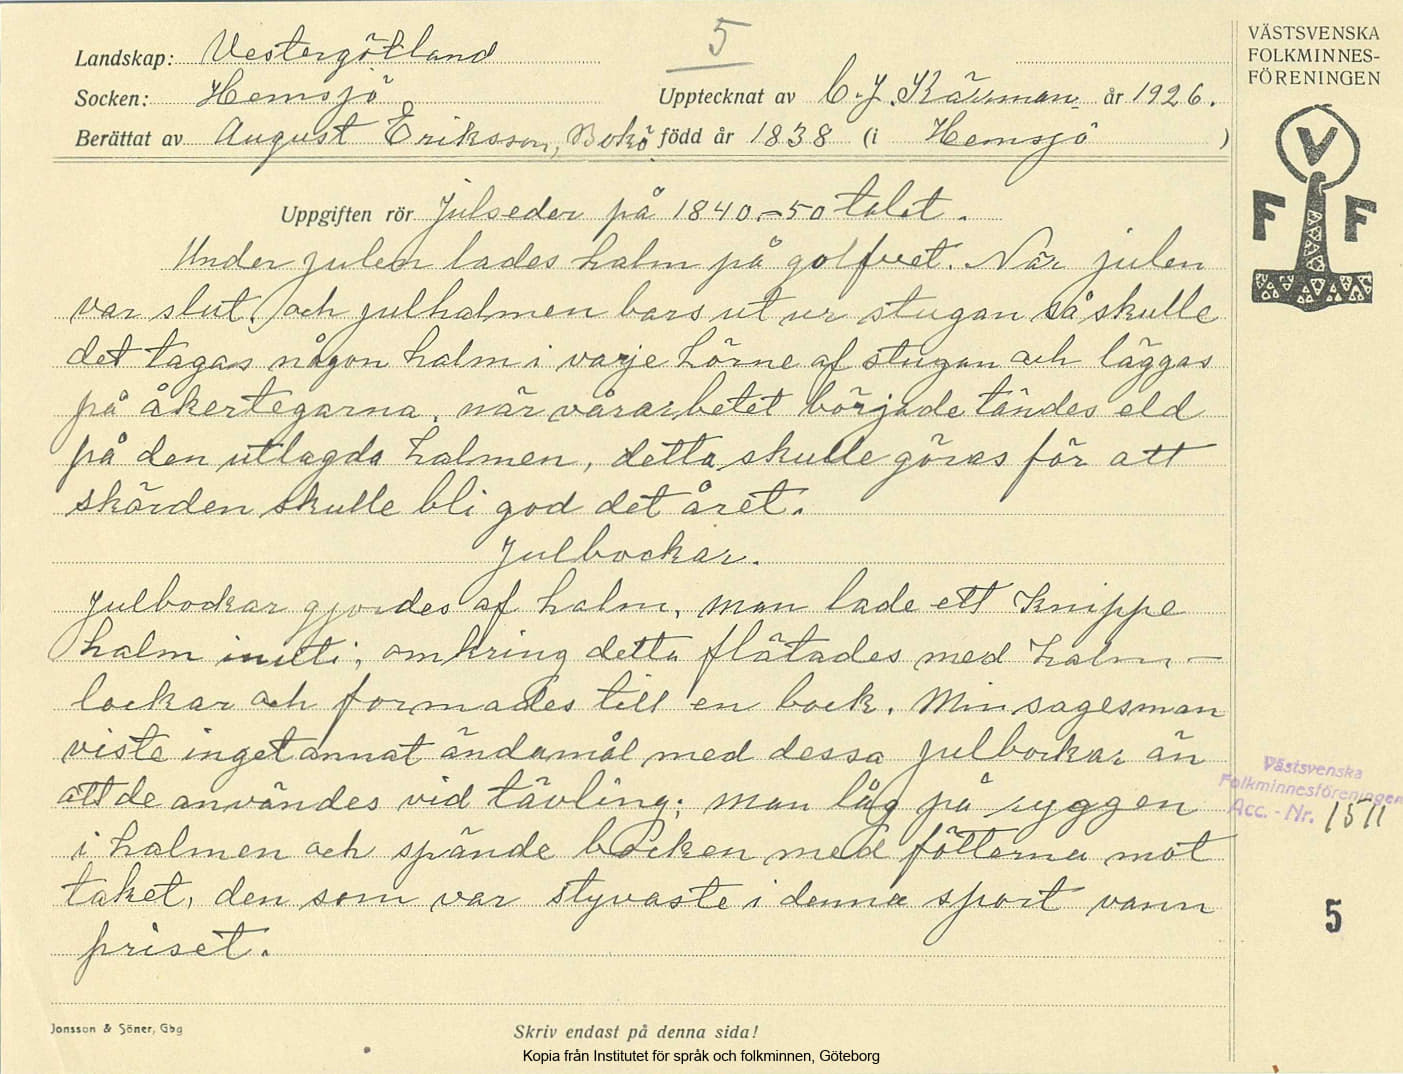 5
VÄSTSVENSKA
FOLKMINNES-
FÖRENINGEN
Landskap: Vestergötland
Socken: Hemsjö Upptecknat av C. J. Kärrman år 1926.
Berättat av August Eriksson, Bokö född år 1838 (i Hemsjö )
V
F F
Uppgiften rör Julseder på 1840-50 talet.
Under julen lades halm på golfvet. När julen
var slut. och julhalmen bars ut ur stugan så skulle
det tagas någon halm i varje hörne af stugan och läggas
på åkertegarna, när vårarbetet började tändes eld
på den utlagda halmen, detta skulle göras för att
skörden skulle bli god det året.
Julbockar.
Julbockar gjordes af halm, man lade ett knippe
halm inuti, omkring detta flätades med halm-
lockar och formades till en bock. Min sagesman
viste inget annat ändamål med dessa julbockar än
att de användes vid tävling; man låg på ryggen
i halmen och spände bocken med fötterna mot
taket, den som var styvaste i denna sport vann
priset.
Västsvenska
Folkminnesföreningen
Acc. - Nr. 1511
5
Jonsson & Söner, Gbg
Skriv endast på denna sida!
Kopia från Institutet för språk och folkminnen, Göteborg